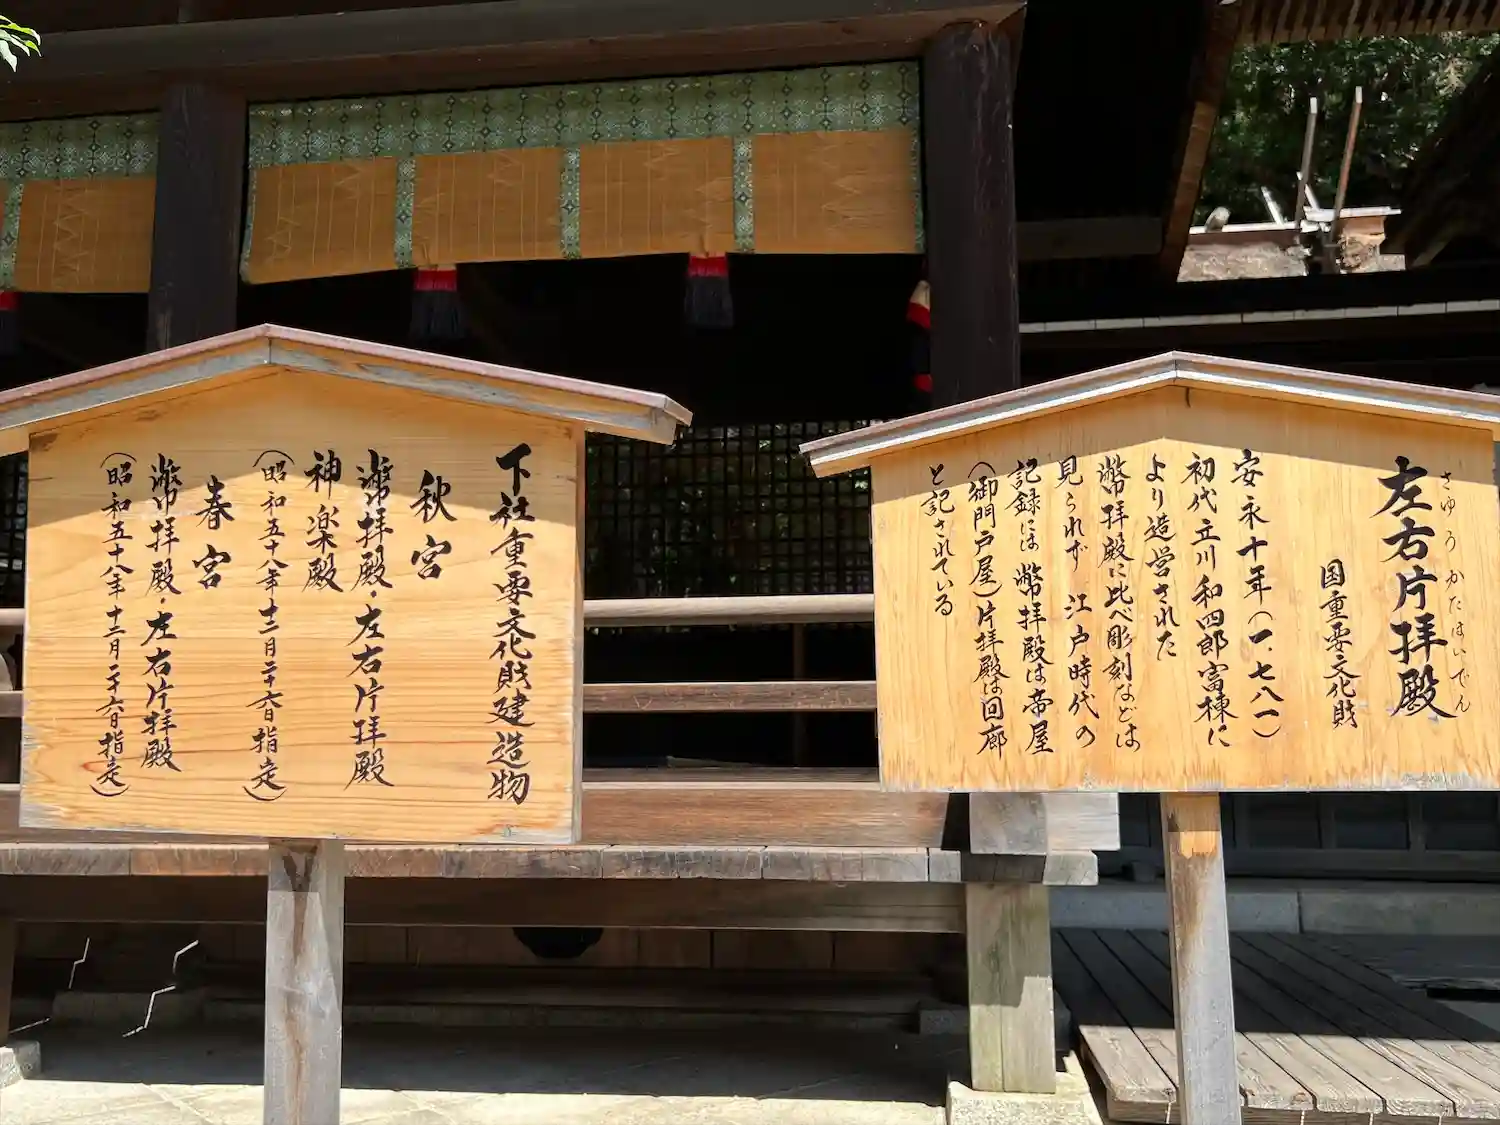 下社重要文化財建造物
秋宮
幣拝殿・左右片拝殿
神楽殿
(昭和五十八年十二月二十六日指定)
春宮
幣拝殿・左右片拝殿
(昭和五十八年十二月二十六日指定)
さゆうかたはいでん
左右片拝殿
国重要文化財
安永十年(一、七八一)
初代立川和四郎富棟に
より造営された
幣拝殿に比べ彫刻などは
見られず 江戸時代の
記録には 幣拝殿は帝屋
(御門戸屋)片拝殿は回廊
と記されている